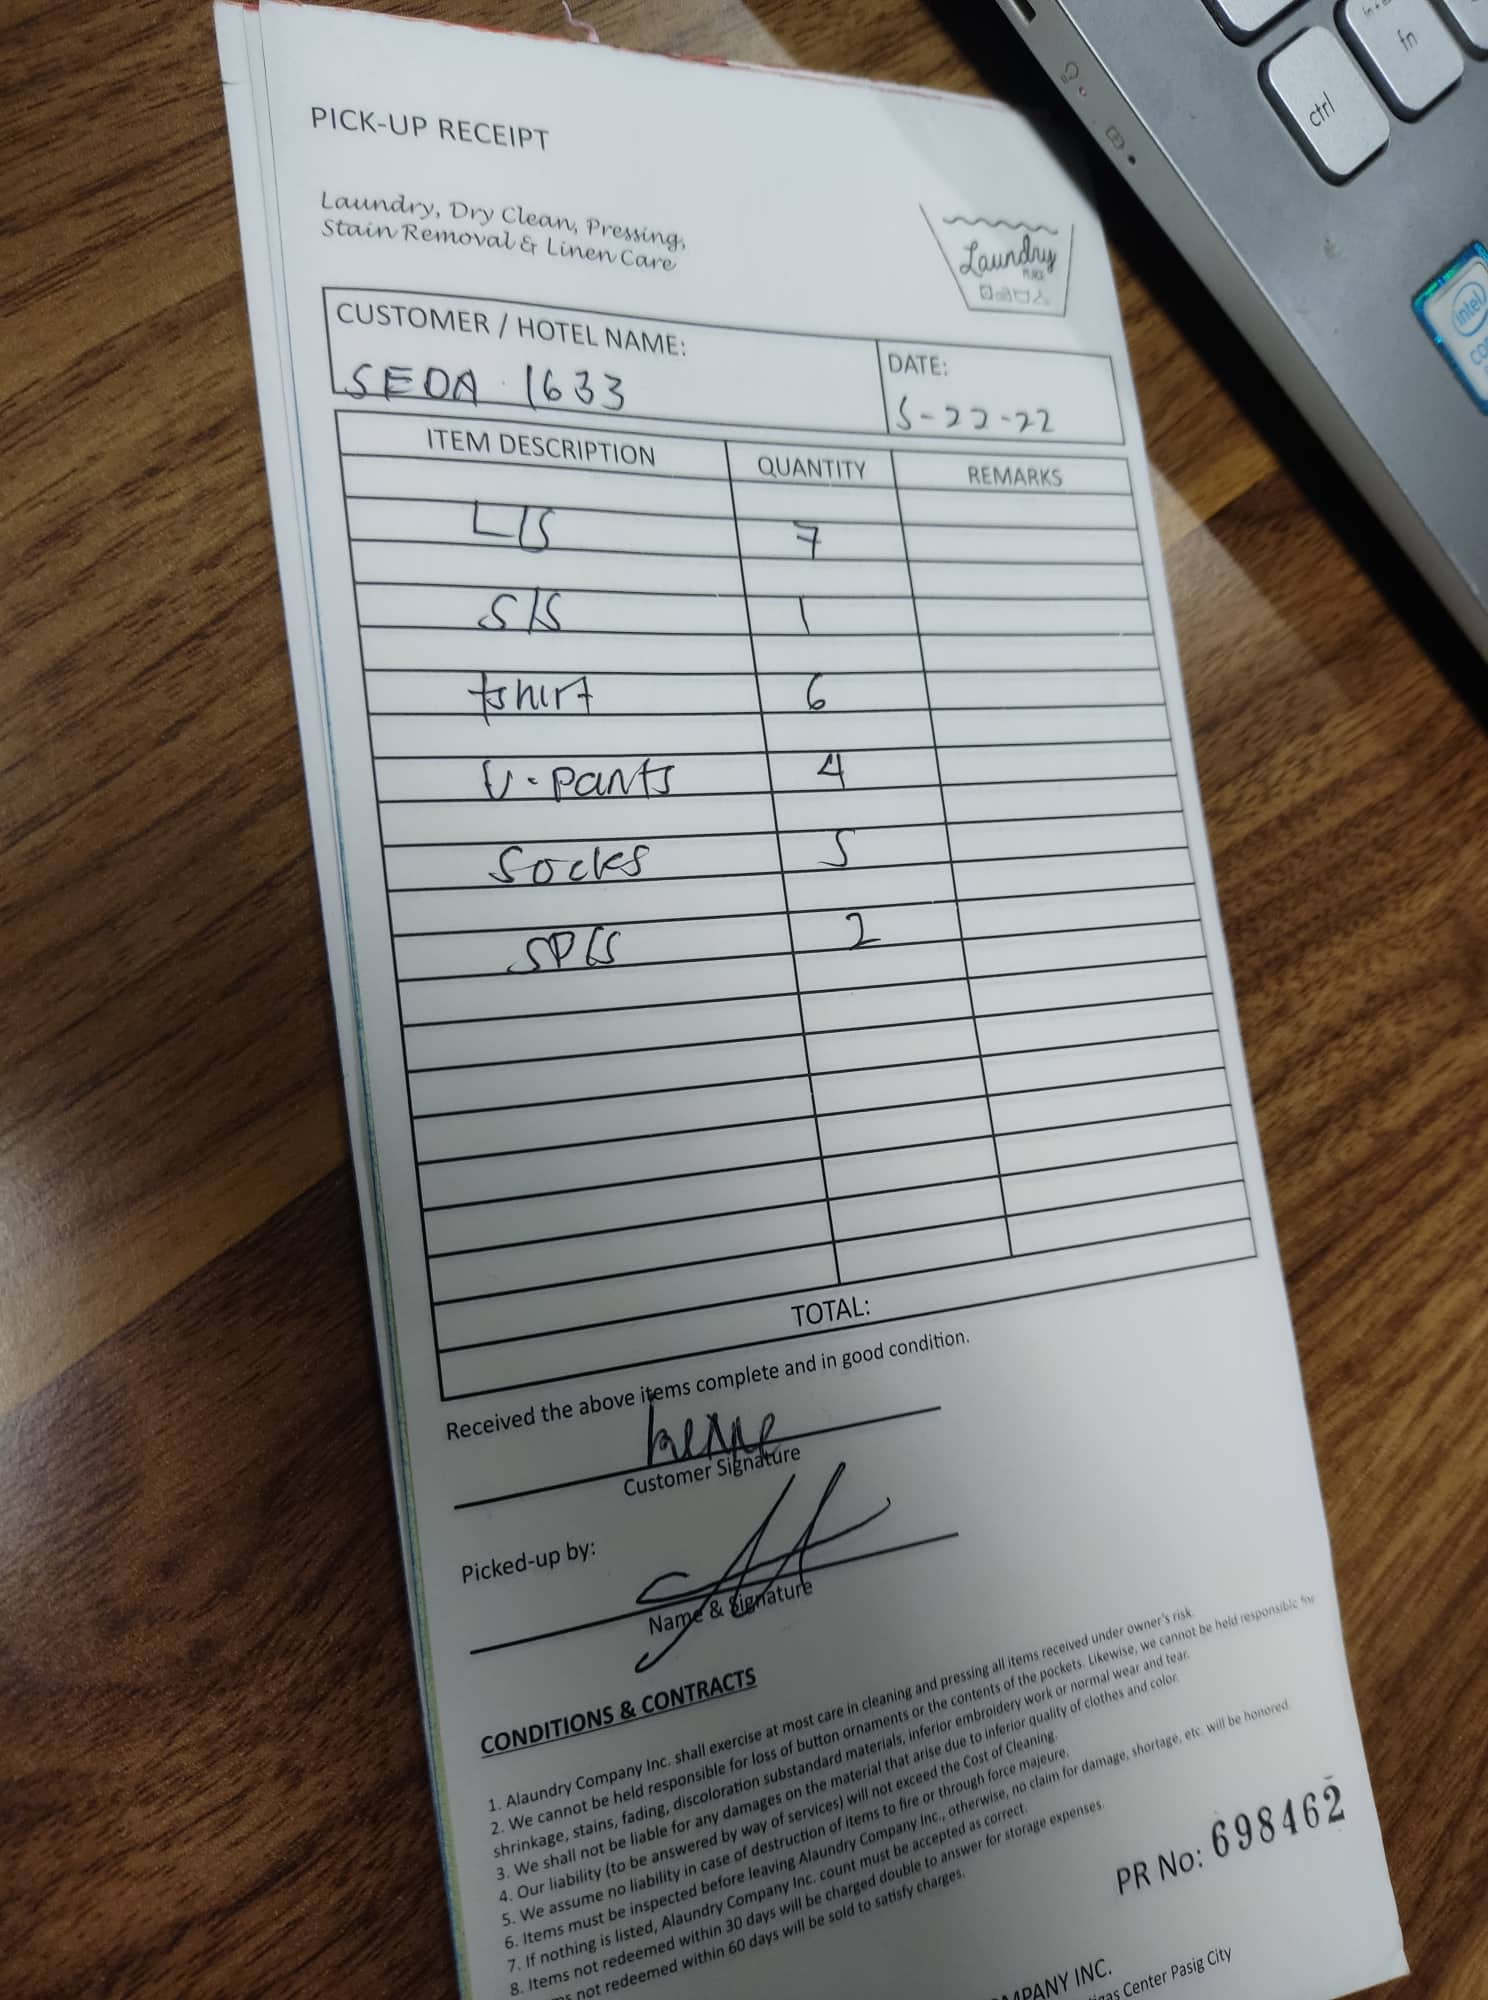 PICK-UP RECEIPT
Laundry, Dry Clean, Pressing,
Stain Removal & Linen Care
Laundry
PLACE
CUSTOMER / HOTEL NAME:
SEDA 1633
DATE:
5-22-22
ITEM DESCRIPTION QUANTITY REMARKS
L/S 7
S/S 1
tshirt 6
U-pants 4
Socks 5
SP/S 2
TOTAL:
Received the above items complete and in good condition.
Customer Signature
Picked-up by:
Name & Signature
CONDITIONS & CONTRACTS
1. Alaundry Company Inc. shall exercise at most care in cleaning and pressing all items received under owner's risk.
2. We cannot be held responsible for loss of button ornaments or the contents of the pockets. Likewise, we cannot be held responsible for
shrinkage, stains, fading, discoloration substandard materials, inferior embroidery work or normal wear and tear.
3. We shall not be liable for any damages on the material that arise due to inferior quality of clothes and color.
4. Our liability (to be answered by way of services) will not exceed the Cost of Cleaning.
5. We assume no liability in case of destruction of items to fire or through force majeure.
6. Items must be inspected before leaving Alaundry Company Inc., otherwise, no claim for damage, shortage, etc. will be honored.
7. If nothing is listed, Alaundry Company Inc. count must be accepted as correct.
8. Items not redeemed within 30 days will be charged double to answer for storage expenses.
not redeemed within 60 days will be sold to satisfy charges.
PR No: 698462
INC.
Center Pasig City
ctrl
fn
intel